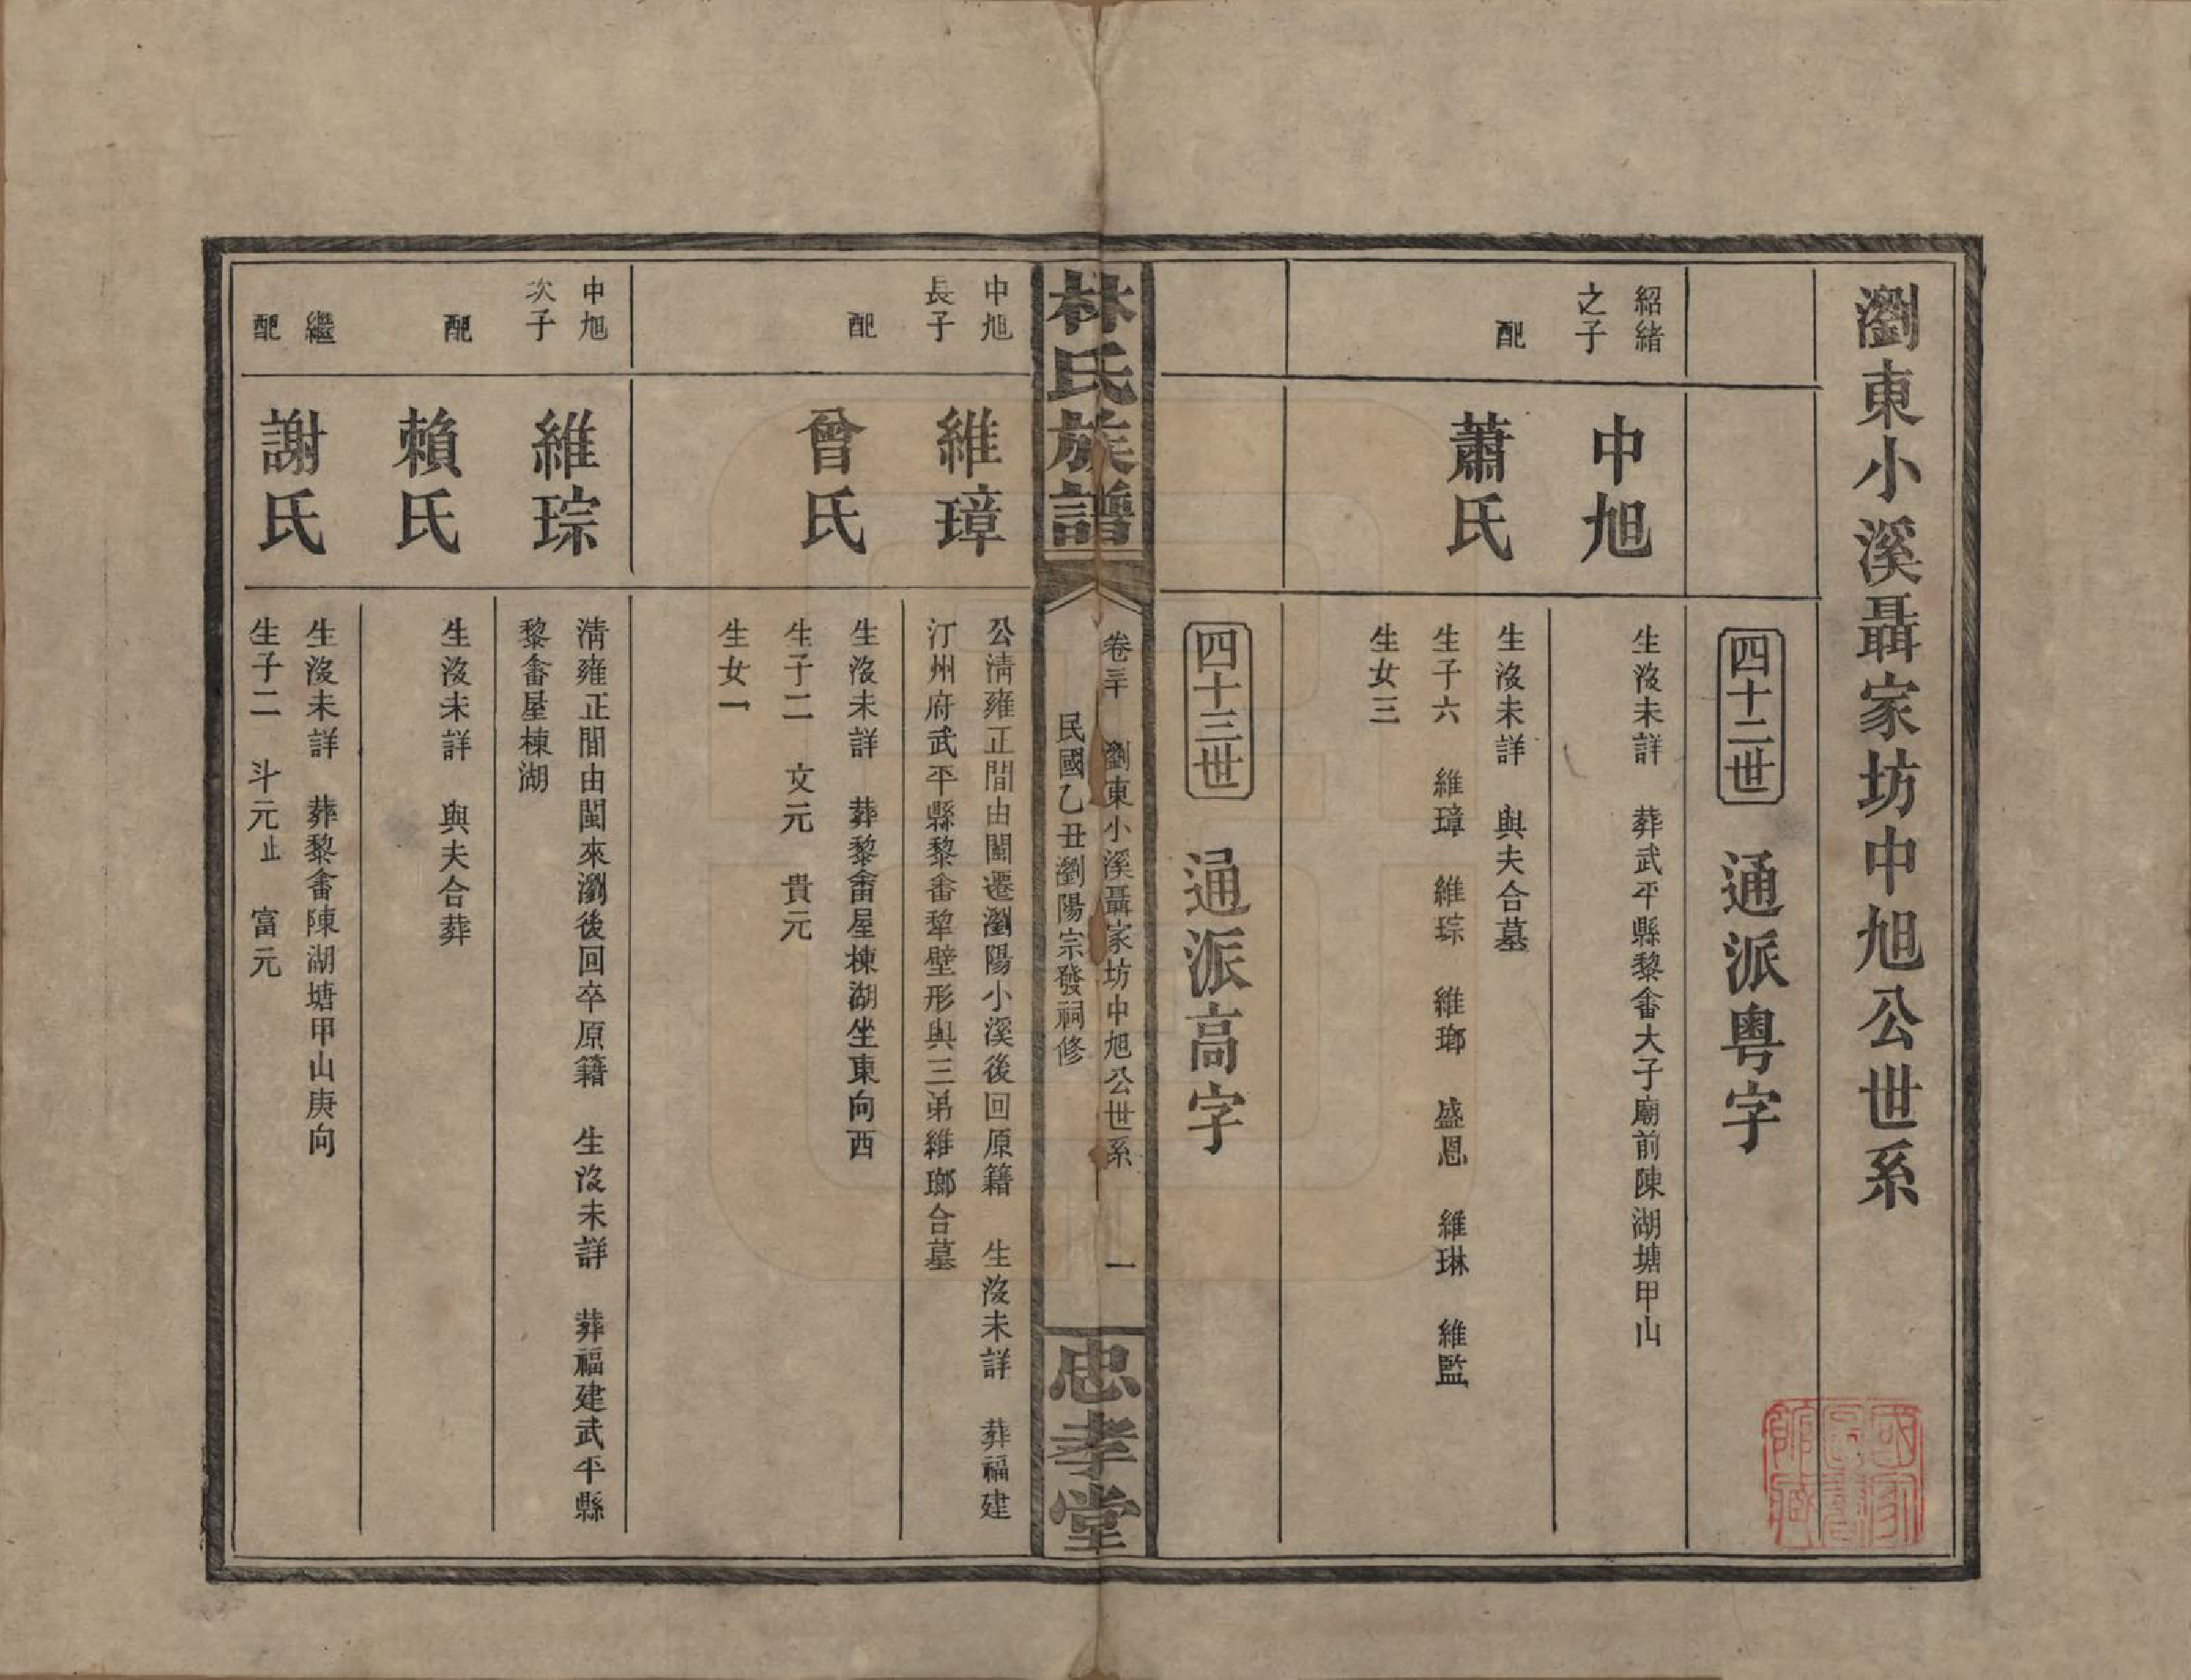 瀏東小溪聶家坊中旭公世系
四十二世　通派粵字
紹緒
之子
中旭
生沒未詳　葬武平縣黎畬大子廟前陳湖塘甲山
配
蕭氏
生沒未詳　與夫合墓
生子六　維璋　維琮　維瑯　盛恩　維琳　維監
生女三
四十三世　通派高字
林氏族譜
卷三十　瀏東小溪聶家坊中旭公世系　一
民國乙丑瀏陽宗發祠修
忠孝堂
中旭
長子
維璋
公淸雍正間由閩遷瀏陽小溪後回原籍　生沒未詳　葬福建
汀州府武平縣黎畬犂壁形與三弟維瑯合墓
配
曾氏
生沒未詳　葬黎畬屋棟湖坐東向西
生子二　文元　貴元
生女一
中旭
次子
維琮
淸雍正間由閩來瀏後回卒原籍　生沒未詳　葬福建武平縣
黎畬屋棟湖
配
賴氏
生沒未詳　與夫合葬
繼
配
謝氏
生沒未詳　葬黎畬陳湖塘甲山庚向
生子二　斗元止　富元
國家
圖書
館藏